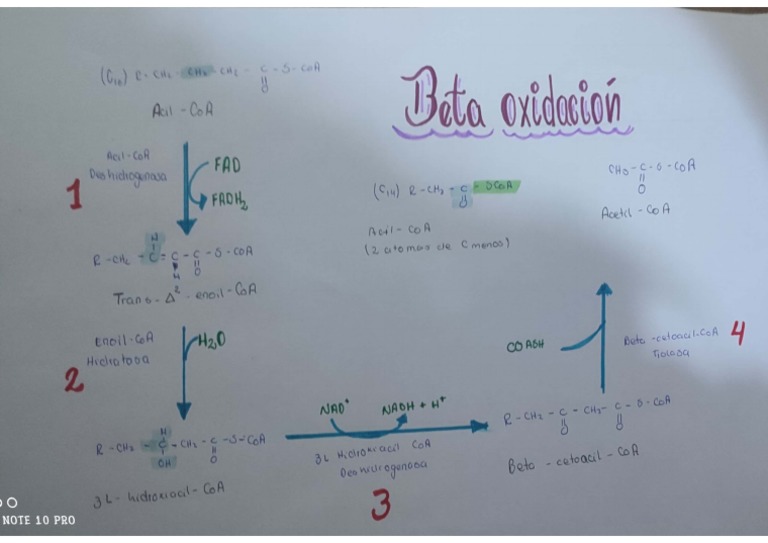 Beta oxidación
(C16) R - CH2 - CH2 - CH2 - C - S - CoA
O
Acil - CoA
1
Acil - CoA
Deshidrogenasa
FAD
FADH2
H
R - CH2 - C = C - C - S - COA
H O
Trans - Δ2 - enoil - CoA
2
Enoil - CoA
Hidratasa
H2O
H
R - CH2 - C - CH2 - C - S - CoA
OH O
3L - hidroxiacil - CoA
NAD+
NADH + H+
3L Hidroxiacil CoA
Deshidrogenasa
3
R - CH2 - C - CH2 - C - S - CoA
O O
Beta - cetoacil - CoA
COASH
Beta - cetoacil - CoA
Tiolasa
4
(C14) R - CH2 - C - SCoA
O
Acil - CoA
(2 atomos de C menos)
CH3 - C - S - COA
O
Acetil - CoA
NOTE 10 PRO